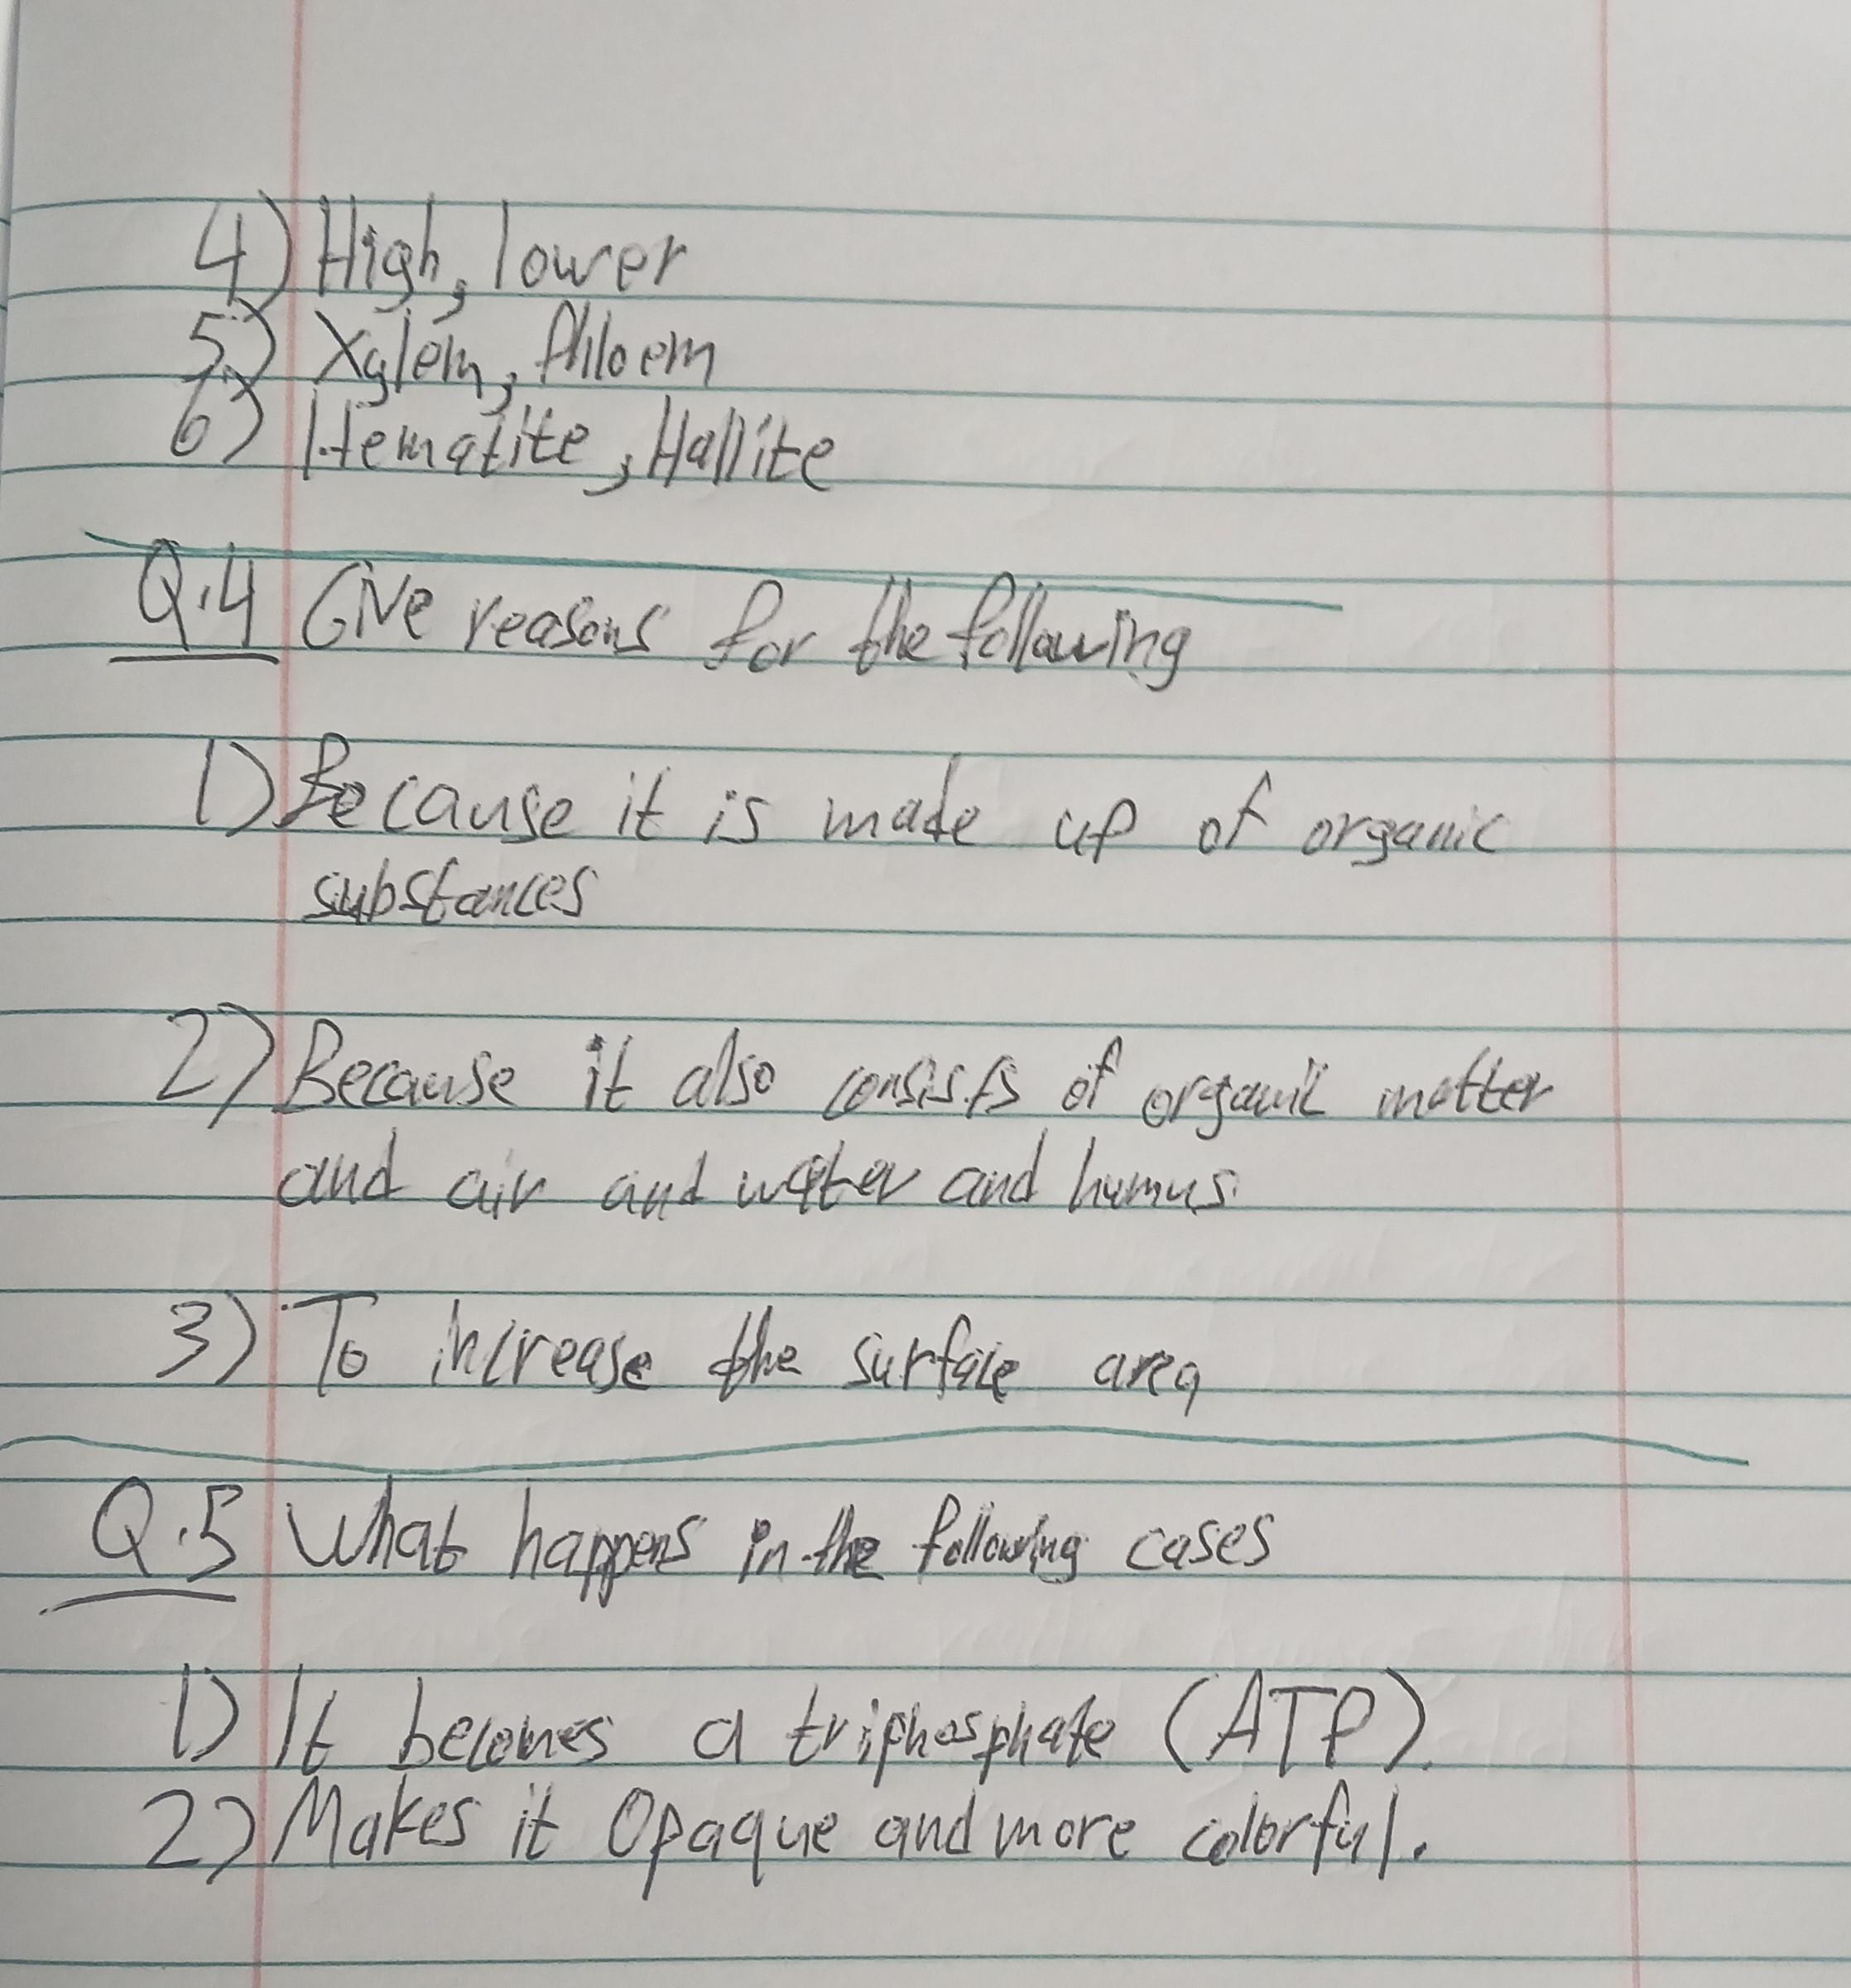 4) High, lower
5) Xylem, Phloem
6) Hematite, Hallite
Q.4 Give reasons for the following
1) Because it is made up of organic
substances
2) Because it also consists of organic matter
and air and water and humus.
3) To increase the surface area
Q.5 What happens in the following cases
1) It becomes a triphosphate (ATP).
2) Makes it Opaque and more colorful.